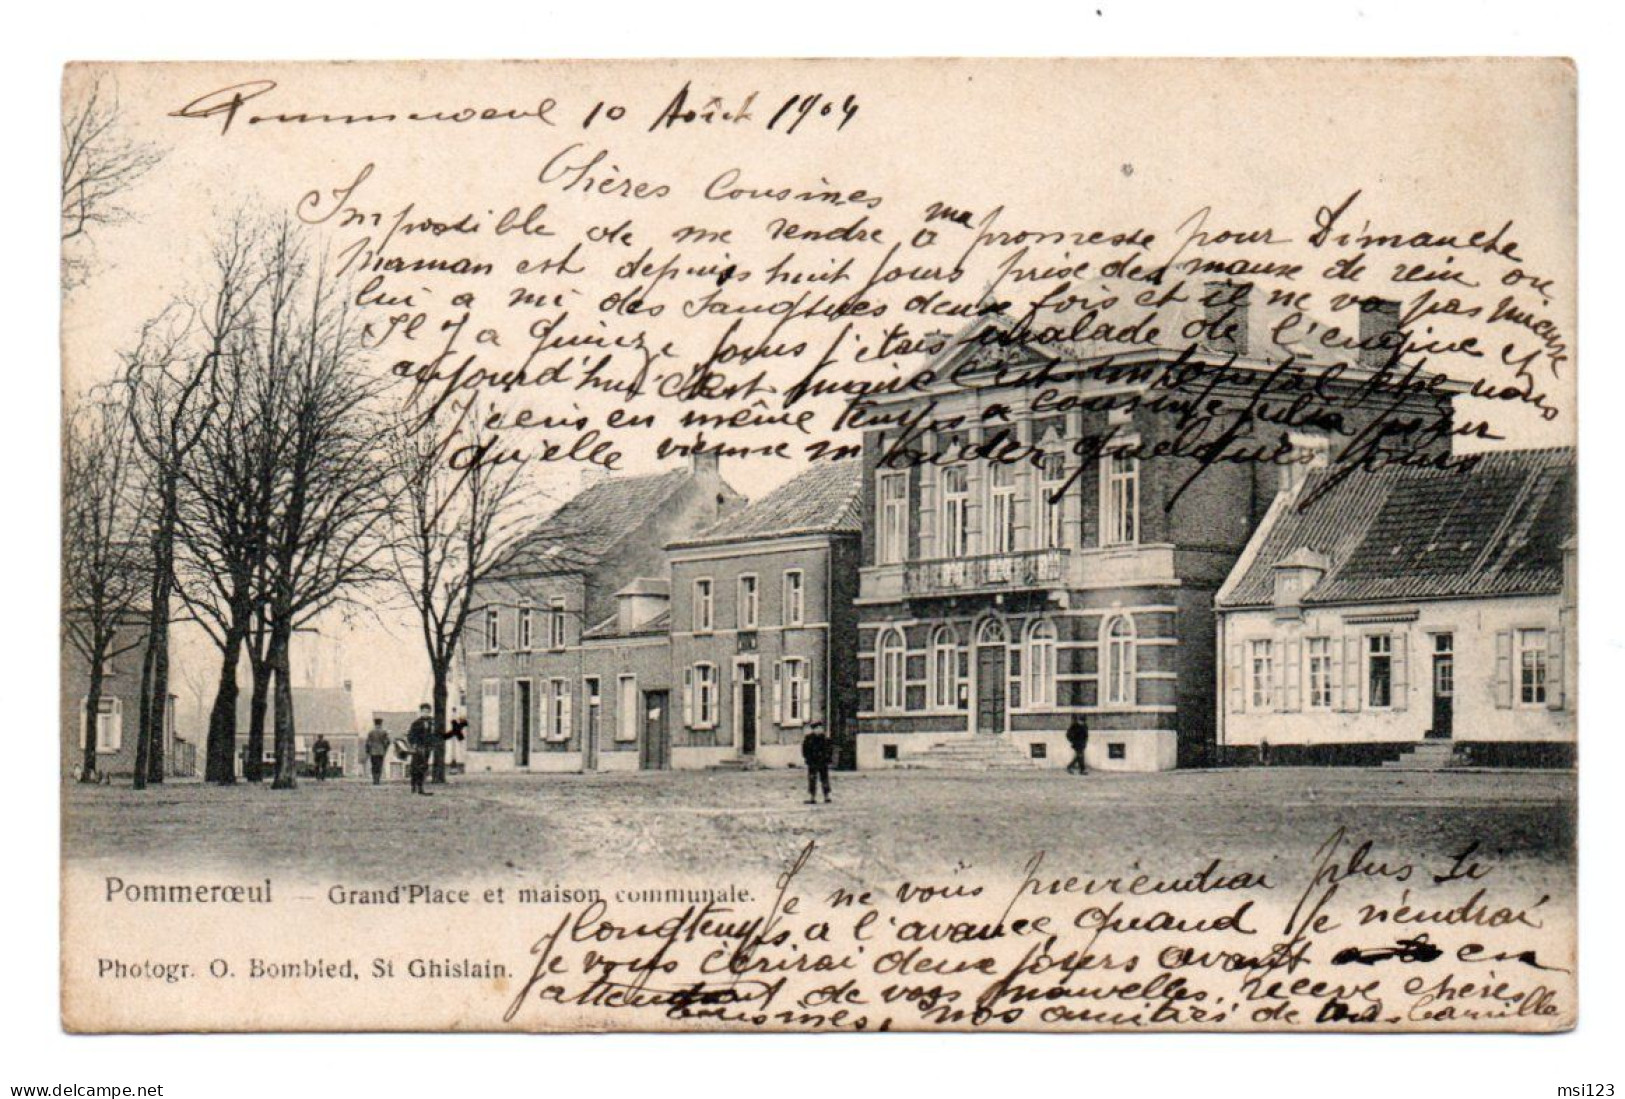 Pommeroeul 10 Août 1904
Chères Cousines
Impossible de me rendre a ma promesse pour Dimanche
Maman est depuis huit jours prise des mause de rein on
lui a mi des sangsues deux fois et il ne va pas mieuse
Il y a quinze jours j'étais malade de l'engine et
aujourd'hui c'est c'est un hopital chez nous
J'ecris en même temps a cousine julia pour
qu'elle vienne m'aider quelques jours
Je ne vous previendrai plus si
longtemps a l'avance quand je viendrai
je vous écrirai deux jours avant en
attendant de vos nouvelles, recevé chères
cousines, nos amitiés de Camille
Pommerœul — Grand'Place et maison communale.
Photogr. O. Bombled, St Ghislain.
delcampe.net
msi123